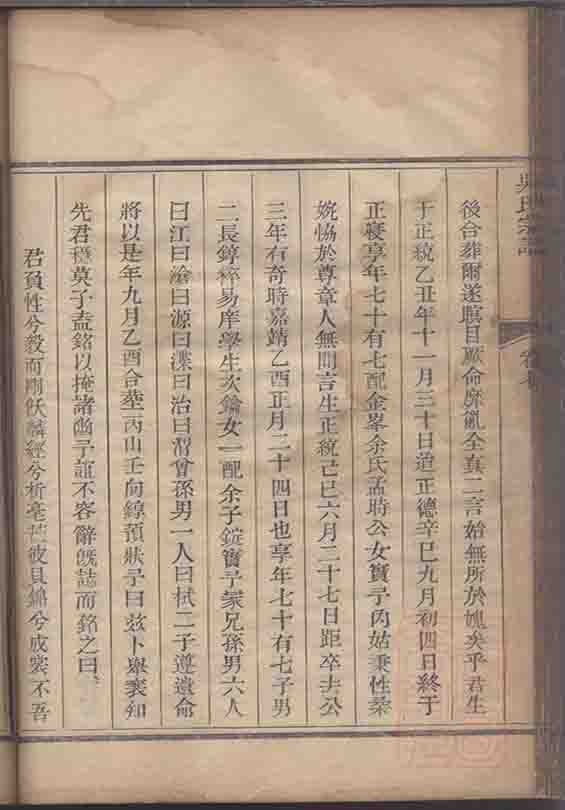 吳氏宗譜
卷七
後合葬爾遂瞑目厥命庶亂全真二言始無所於媿矣乎君生
于正統乙丑年十一月三十日迨正德辛巳九月初四日終于
正寢享年七十有七配金峯余氏孟時公女寶予內姑秉性柔
婉恊於尊章人無間言生正統己巳六月二十七日距卒去公
三年有奇時嘉靖乙酉正月二十四日也享年七十有七子男
二長錞稡易庠學生次鑰女一配余子錠實予家兄孫男六人
曰江曰淦曰源曰渫曰治曰習曾孫男一人曰栻二子遵遺命
將以是年九月乙酉合塟丙山壬向錞預狀予曰玆卜舉襄知
先君穩莫子盍銘以掩諸幽予誼不容辭旣誌而銘之曰
君負性兮毅而剛飫麟經兮析毫芒彼貝錦兮成裳不吾